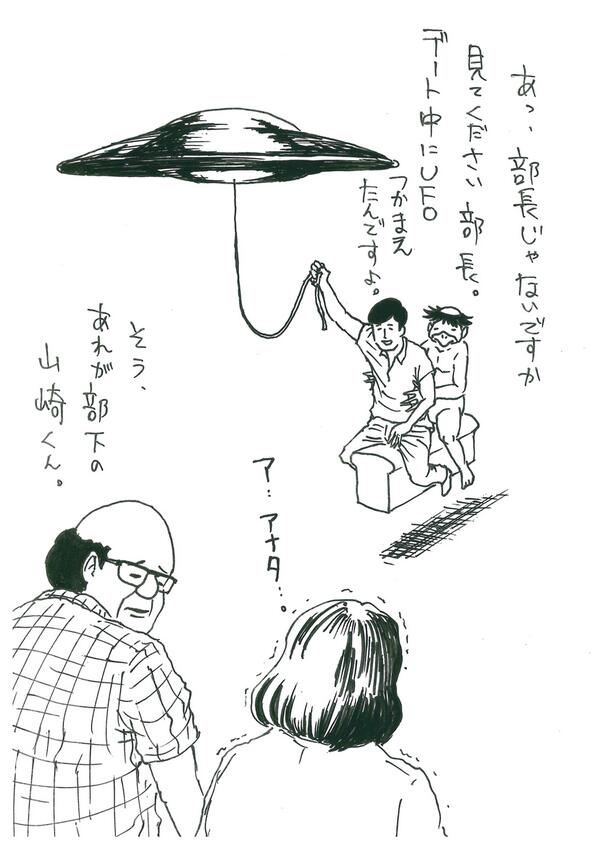 あっ、部長じゃないですか
見てください部長。
デート中にUFO
つかまえ
たんですよ。
そう、
あれが部下の
山崎くん。
ア…アナタ…。